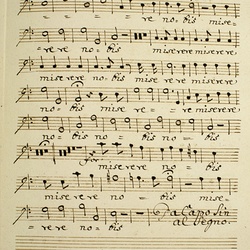 = = = = re re no = bis
= re re no = bis miserere miserere
miserere no = bis miserere miserere
no = bis mise re = re miserere
no = bis no = bis no = bis
miserere no = bis
miserere no = bis mise =
rere no = bis Da Capo Sin
al Segno.